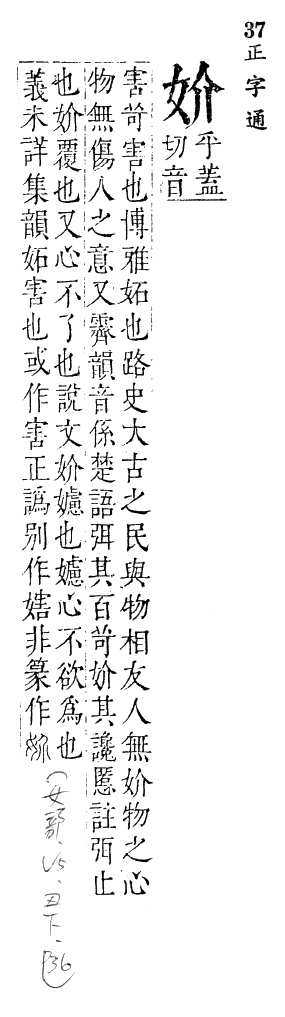 37正字通
妎 乎蓋
切音
害苛害也博雅妬也路史大古之民與物相友人無妎物之心
物無傷人之意又霽韻音係楚語弭其百苛妎其讒慝註弭止
也妎覆也又心不了也說文妎也心不欲爲也
義未詳集韻妬害也或作害正譌別作非篆作妎
(女部、丑下、